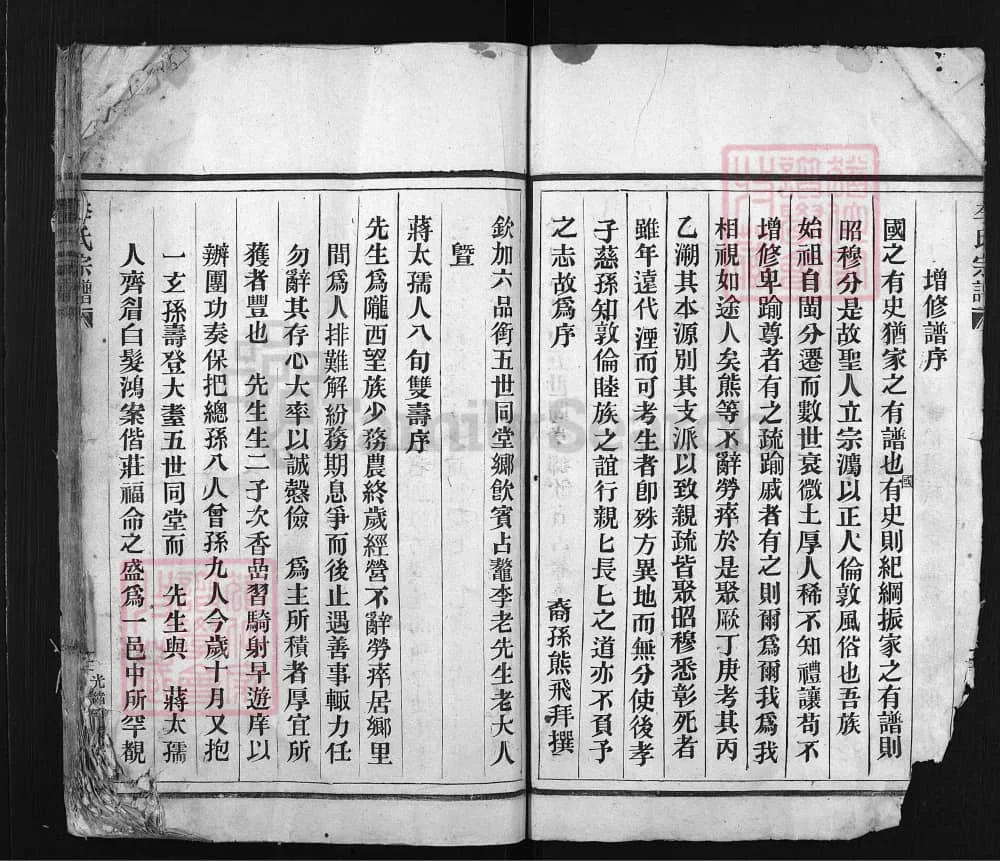 增修譜序
國之有史猶家之有譜也國有史則紀綱振家之有譜則
昭穆分是故聖人立宗灋以正人倫敦風俗也吾族
始祖自閩分遷而數世衰微土厚人稀不知禮讓苟不
增修卑踰尊者有之疏踰戚者有之則爾爲爾我爲我
相視如途人矣熊等不辭勞瘁於是聚厥丁庚考其丙
乙溯其本源別其支派以致親疏皆聚昭穆悉彰死者
雖年遠代湮而可考生者卽殊方異地而無分使後孝
子慈孫知敦倫睦族之誼行親匕長匕之道亦不負予
之志故爲序
裔孫熊飛拜撰
欽加六品銜五世同堂鄉飲賓占鼇李老先生老大人
暨
蔣太孺人八旬雙壽序
先生爲隴西望族少務農終歲經營不辭勞瘁居鄉里
間爲人排難解紛務期息爭而後止遇善事輙力任
勿辭其存心大率以誠慤儉 爲主所積者厚宜所
獲者豐也 先生生二子次香嵒習騎射早遊庠以
辦團功奏保把總孫八人曾孫九人今歲十月又抱
一玄孫壽登大耋五世同堂而 先生與 蔣太孺
人齊眉白髮鴻案偕莊福命之盛爲一邑中所罕覩
李氏宗譜
光緒